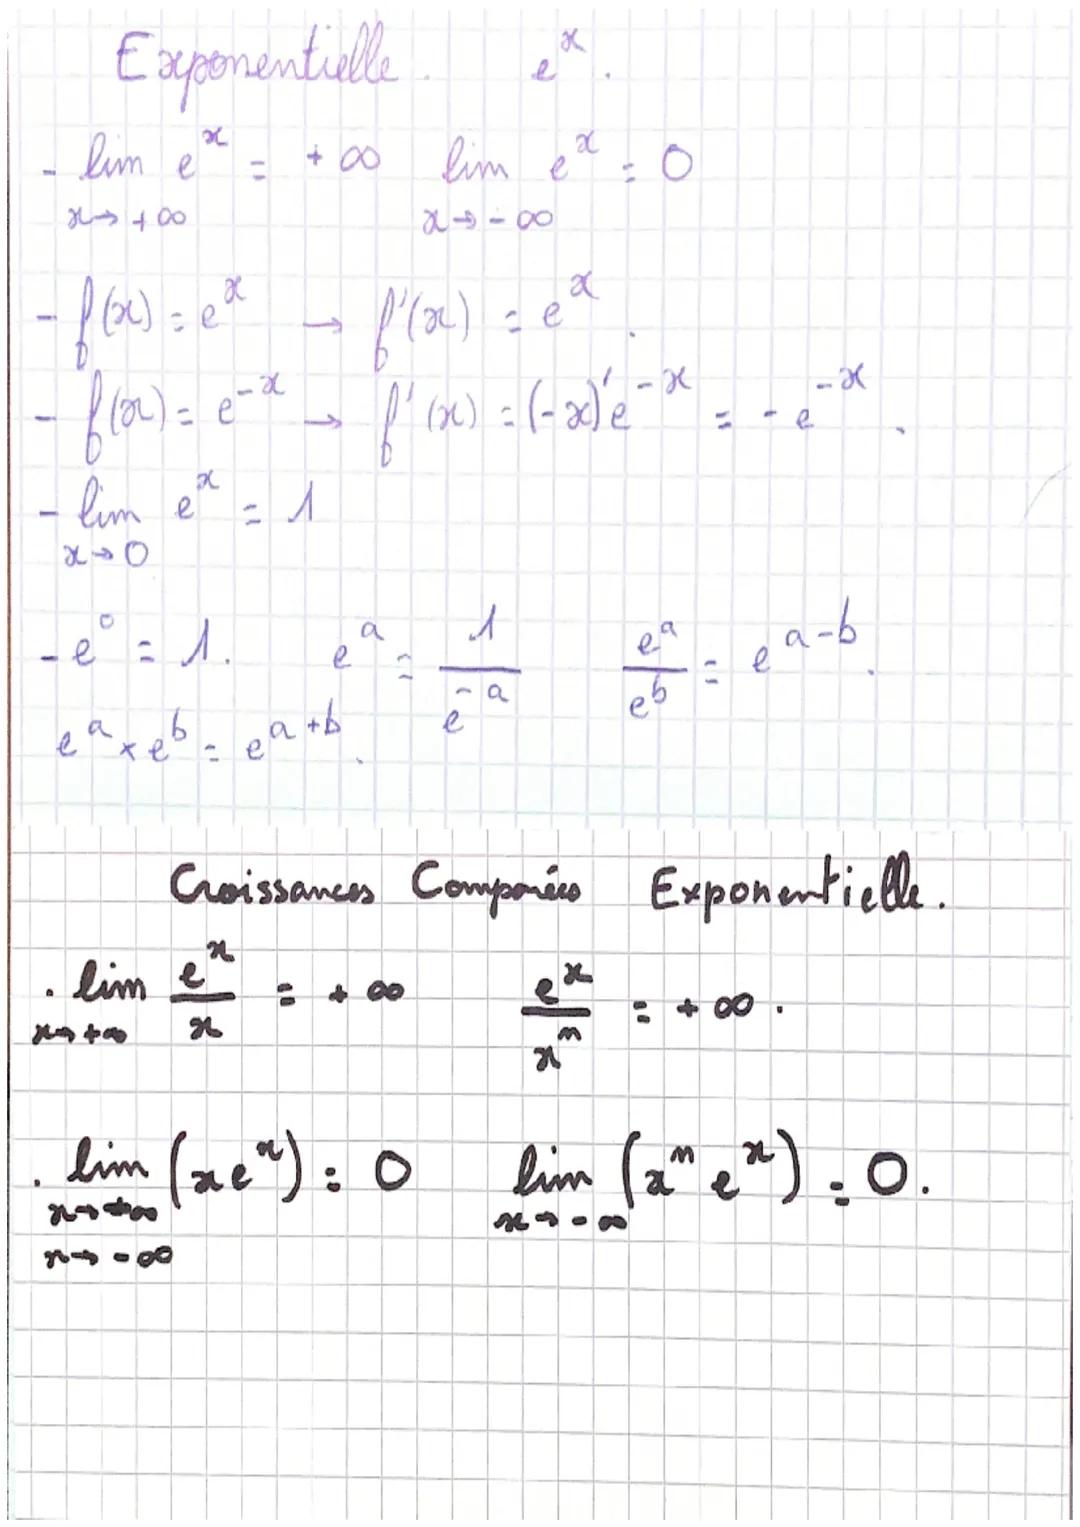 Exponentielle. e^x.
- lim e^x = +∞ lim e^x = 0
x→+∞ x→-∞
- f(x) = e^x → f'(x) = e^x.
- f(x) = e^-x → f'(x) = (-x)'e^-x = -e^-x.
- lim e^x = 1
x→0
- e^0 = 1. e^a = 1/e^-a e^a/e^b = e^a-b.
e^a × e^b = e^a+b.
Croissances Comparées Exponentielle.
. lim e^x/x = +∞ e^x/x^n = +∞.
x→+∞
. lim (xe^x) = 0 lim (x^n e^x) = 0.
x→+∞ x→-∞
x→-∞